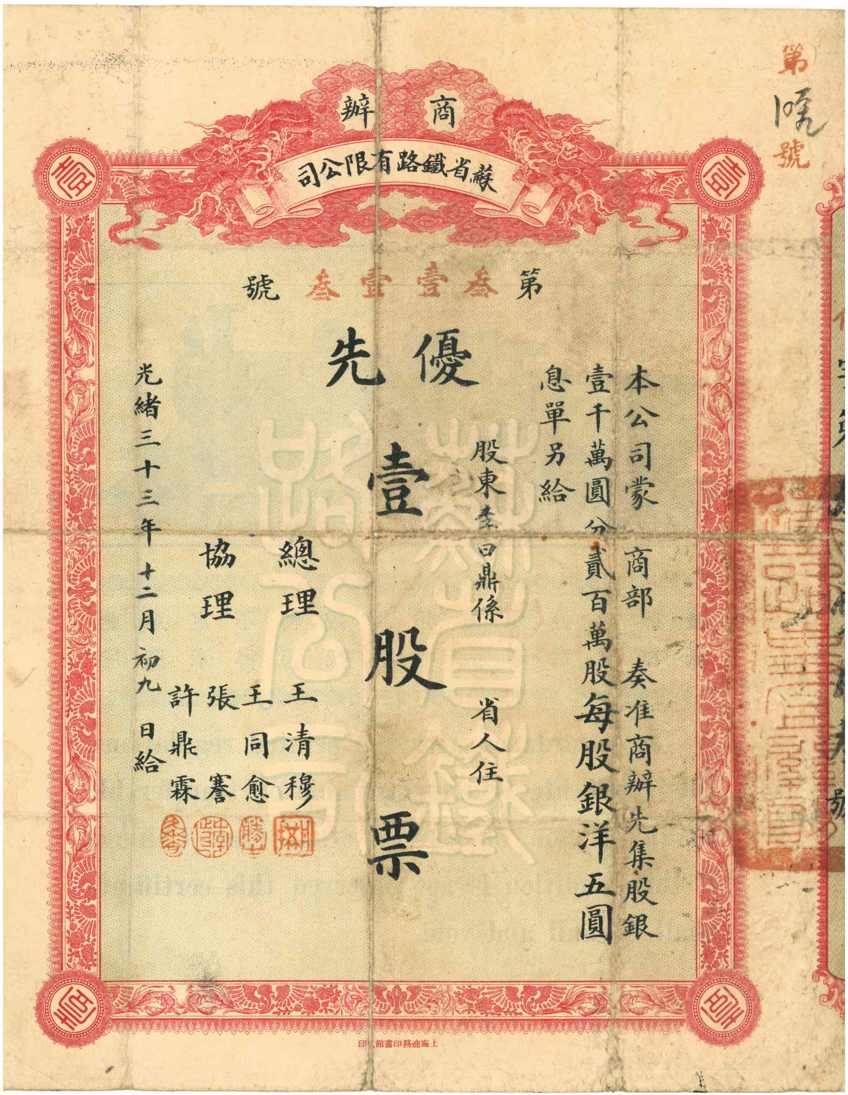 商辦
蘇省鐵路有限公司
第
號
第叁壹壹叁號
優先
壹股票
本公司蒙 商部 奏准商辦先集股銀
壹千萬圓分貳百萬股每股銀洋五圓
息單另給
股東李曰鼎係 省人住
總理 王清穆
王同愈
協理 張謇
許鼎霖
光緒三十三年十二月初九日給
蘇省鐵
路公司
號
上海商務印書館印